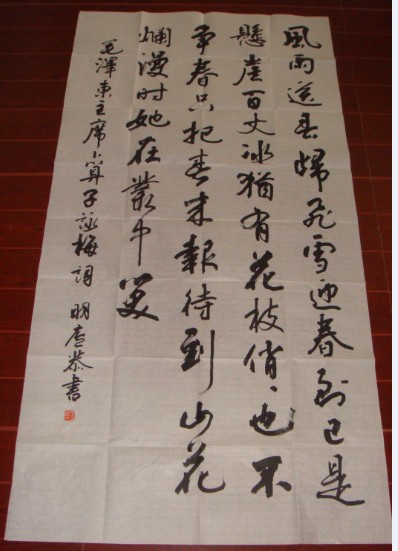 風雨送春歸飛雪迎春到已是
懸崖百丈冰猶有花枝俏俏也不
爭春只把春來報待到山花
爛漫时她在叢中笑
毛澤東主席卜算子詠梅詞 明春恭書